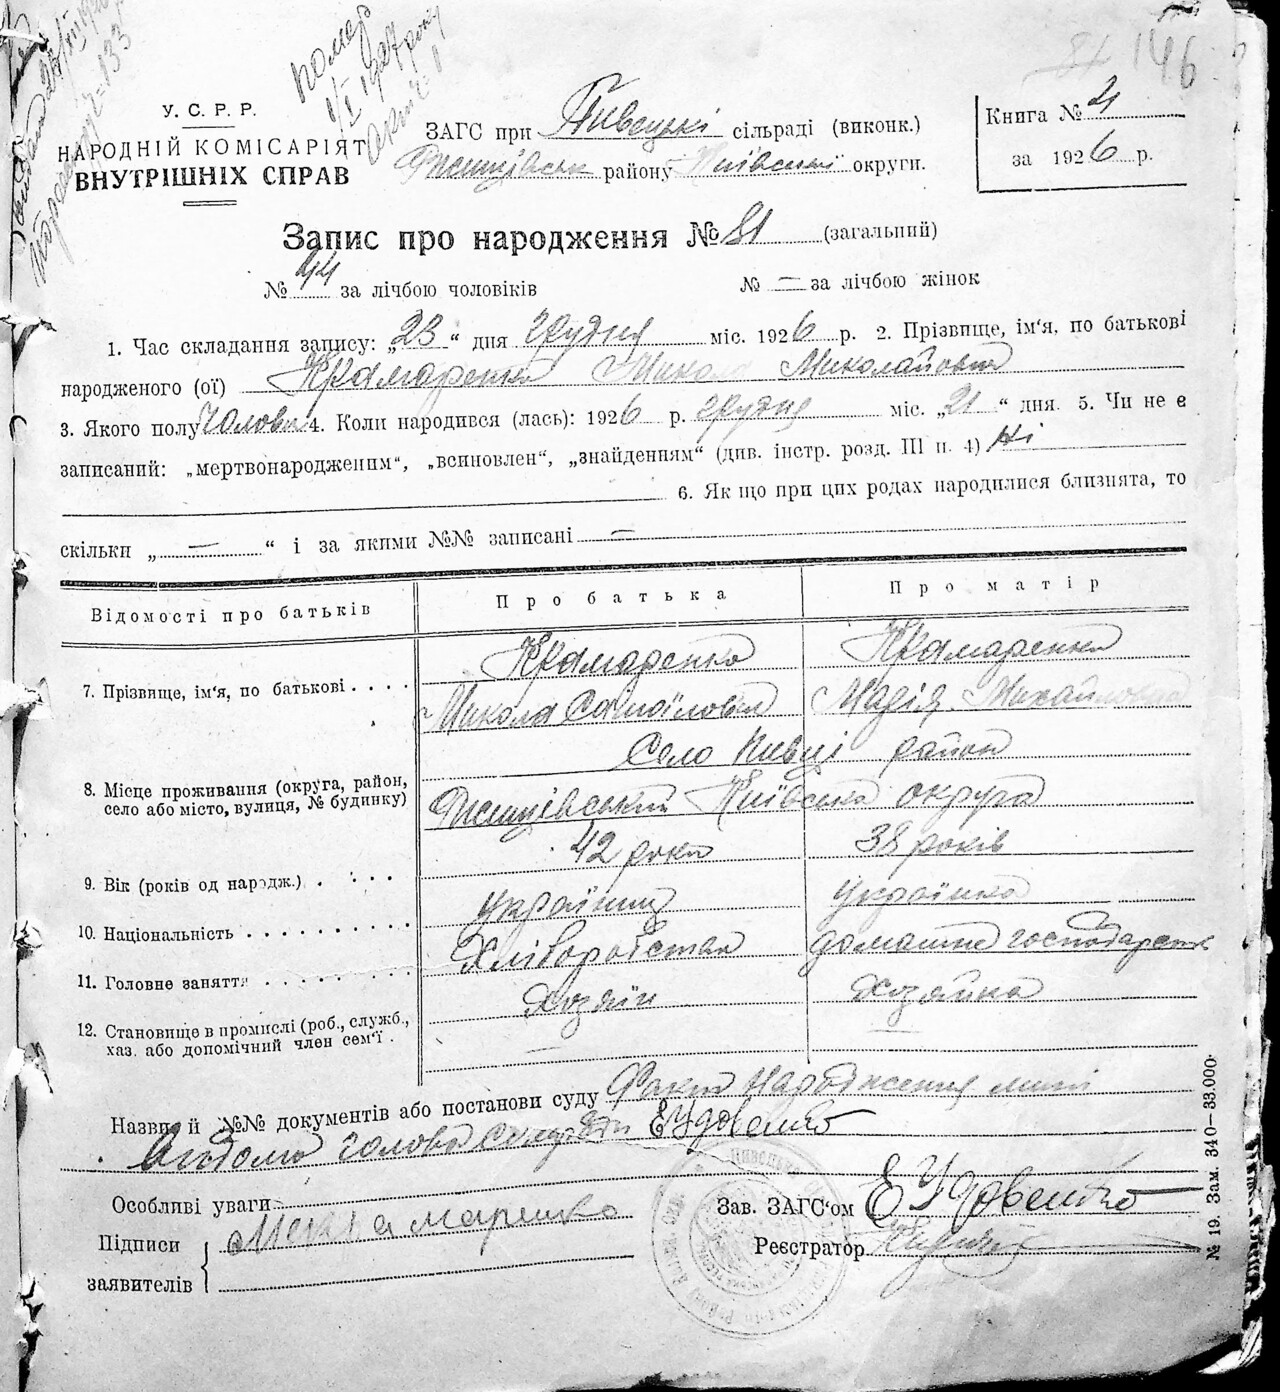 146
помер
1/I 1927 року
У. С. Р. Р.
НАРОДНІЙ КОМІСАРІЯТ
ВНУТРІШНІХ СПРАВ
ЗАГС при Пивецькі сільраді (виконк.)
району Київської округи.
Книга № 2
за 1926 р.
Запис про народження № 81 (загальний)
№ 44 за лічбою чоловіків № — за лічбою жінок
1. Час складання запису: „23“ дня грудня міс. 1926 р. 2. Прізвище, ім‘я, по батькові
народженого (ої) Крамаренко Микола Миколайович
3. Якого полу чолови 4. Коли народився (лась): 1926 р. грудня міс. „21“ дня. 5. Чи не є
записаний: „мертвонародженим“, „всиновлен“, „знайденням“ (див. інстр. розд. III п. 4) Ні
6. Як що при цих родах народилися близнята, то
скільки „ — “ і за якими №№ записані —
Відомості про батьків Про батька Про матір
Крамаренко Крамаренко
7. Прізвище, ім‘я, по батькові . . . .
Микола Самойлович Марія Михайловна
Село Пивці район
8. Місце проживання (округа, район,
село або місто, вулиця, № будинку)
Київська округа
42 роки 38 років
9. Вік (років од народж.) . . . .
українец українка
10. Національність . . . . . . . . . .
Хліборобство домашне господарств
11. Головне заняття . . . . . . . .
Хозяїн Хозяйка
12. Становище в промислі (роб., служб.,
хаз. або допомічний член сем‘ї .
Назви й №№ документів або постанови суду Факт народження мині
відомо голова сільради ЕУдовенко
Особливі уваги
Підписи
заявителів
Зав. ЗАГС‘ом ЕУдовенко
Реєстратор
№ 19. Зам. 340—33.000.